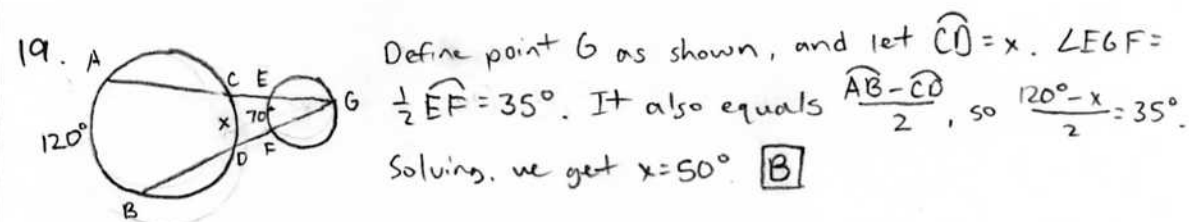 19.
A
C E
G
120°
x
70
D
F
B
Define point G as shown, and let \overset{\frown}{CD} = x. ∠EGF =
\frac{1}{2} \overset{\frown}{EF} = 35°. It also equals \frac{\overset{\frown}{AB} - \overset{\frown}{CD}}{2}, so \frac{120° - x}{2} = 35°.
Solving, we get x = 50° B